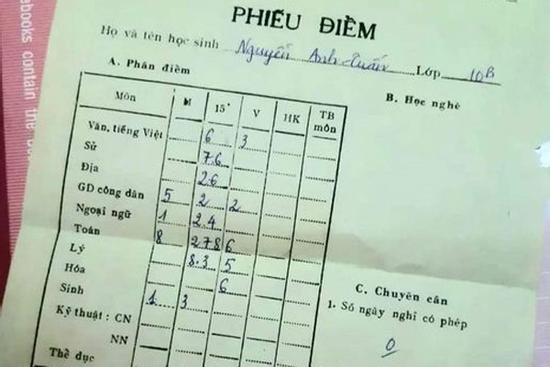 abooks contain the
PHIẾU ĐIỂM
Họ và tên học sinh Nguyễn Anh Tuấn Lớp 10B
A. Phần điểm
B. Học nghề
Môn M 15' V HK TB môn
Văn, tiếng Việt 6 3
Sử 7 6
Địa 2 6
GD công dân 5 2 2
Ngoại ngữ 1 2.4
Toán 8 2 7 8 6
Lý 8.3 5
Hóa 6
Sinh 1 3
Kỹ thuật : CN
NN
Thể dục
C. Chuyên cần
1. Số ngày nghỉ có phép
0